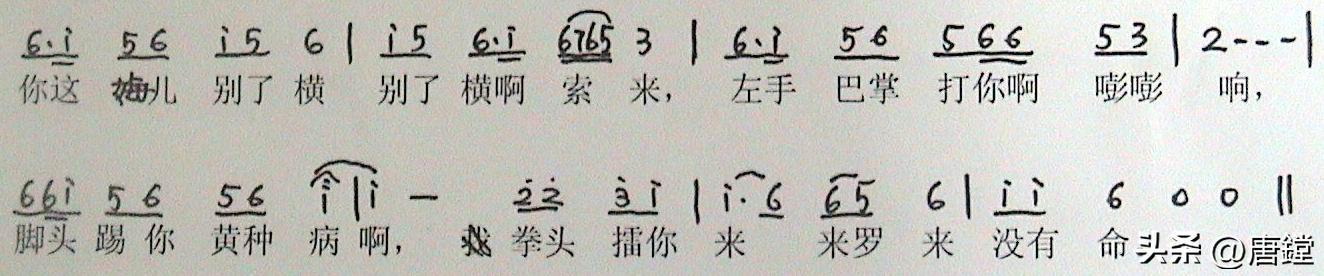 6·i 56 i5 6 | i5 6·i 6765 3 | 6·i 56 566 53 | 2--- |
你这 儿 别了 横 别了 横啊 索 来, 左手 巴掌 打你啊 嘭嘭 响,
66i 56 56 i | i — 22 3i | i·6 65 6 | i i 6 0 0 ||
脚头 踢你 黄种 病啊, 拳头 擂你 来 来罗 来 没有 命
头条 @唐鏜